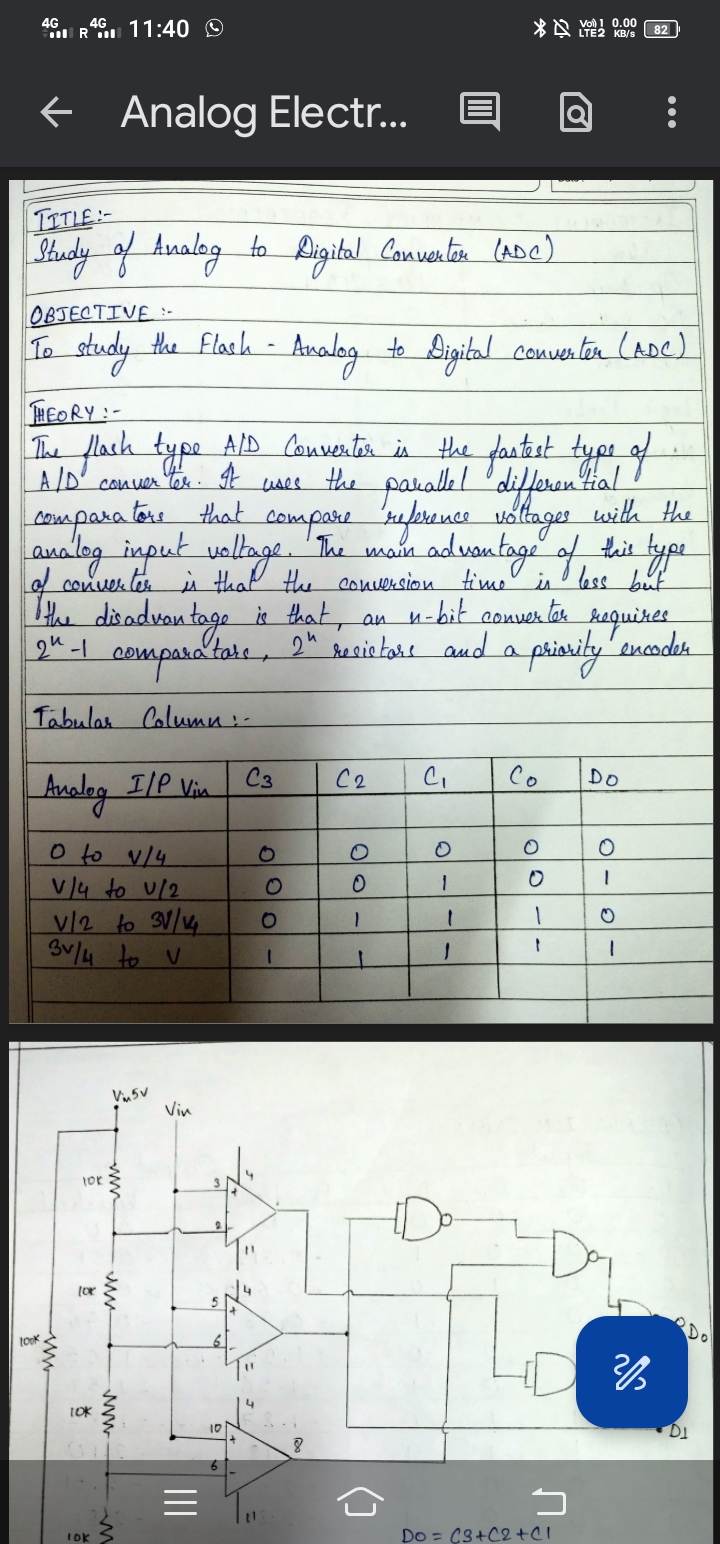 4G R 4G 11:40 Vo)) 1 LTE2 0.00 KB/s 82
Analog Electr...
TITLE:-
Study of Analog to Digital Converter (ADC)
OBJECTIVE :-
To study the Flash - Analog to Digital converter (ADC)
THEORY :-
The flash type A/D Converter is the fastest type of
A/D converter. It uses the parallel differential
comparators that compare reference voltages with the
analog input voltage. The main advantage of this type
of converter is that the conversion time is less but
the disadvantage is that, an n-bit converter requires
2ⁿ-1 comparators, 2ⁿ resistors and a priority encoder
Tabular Column :-
Analog I/P Vin C3 C2 C1 C0 D0
0 to V/4 0 0 0 0 0
V/4 to V/2 0 0 1 0 1
V/2 to 3V/4 0 1 1 1 0
3V/4 to V 1 1 1 1 1
Vin5V
Vin
4
10K 3
+
2
-
11
4
10K 5
+
D0
100K 6
-
11
4
10K 10
+
8
D1
6
-
11
10K D0 = C3+C2+C1